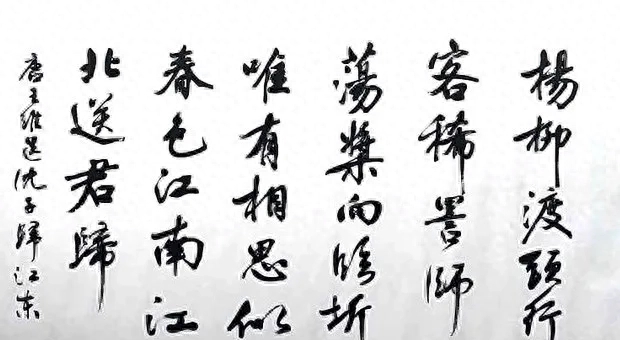 楊柳渡頭行
客稀罟師
蕩槳向臨圻
唯有相思似
春色江南江
北送君歸
唐王維送沈子歸江東